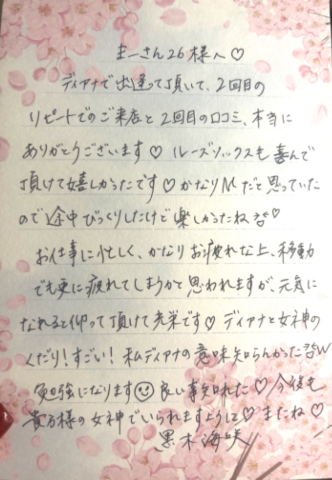 まーさん26様へ♡
ディアナで出逢って頂いて、2回目の
リピートでのご来店と2回目の口コミ、本当に
ありがとうございます♡ルーズソックスも喜んで
頂けて嬉しかったです♡かなりMだと思っていた
ので途中びっくりしたけど楽しかったね♡
お仕事に忙しく、かなりお疲れな上、移動
でも更に疲れてしまうかと思われますが、元気に
なれると仰って頂けて光栄です♡ディアナと女神の
くだり!すごい!私ディアナの意味知らんかったw
勉強になります☺良い事知れた♡今後も
貴方様の女神でいられますように♡またね♡
黒木海咲